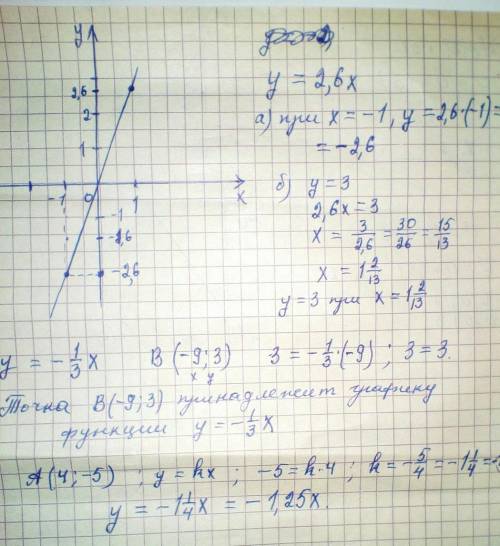 y
2,6
2
1
-1 0 1 x
-1
-2,6
-2,6
y = 2,6x
а) при x = -1, y = 2,6·(-1) =
= -2,6
б) y = 3
2,6x = 3
x = 3/2,6 = 30/26 = 15/13
x = 1 2/13
y = 3 при x = 1 2/13
y = -1/3 x B(-9; 3) 3 = -1/3·(-9); 3 = 3.
x y
Точка B(-9; 3) принадлежит графику
функции y = -1/3 x
A(4; -5) ; y = kx ; -5 = k·4 ; k = -5/4 = -1 1/4 =
y = -1 1/4 x = -1,25x.